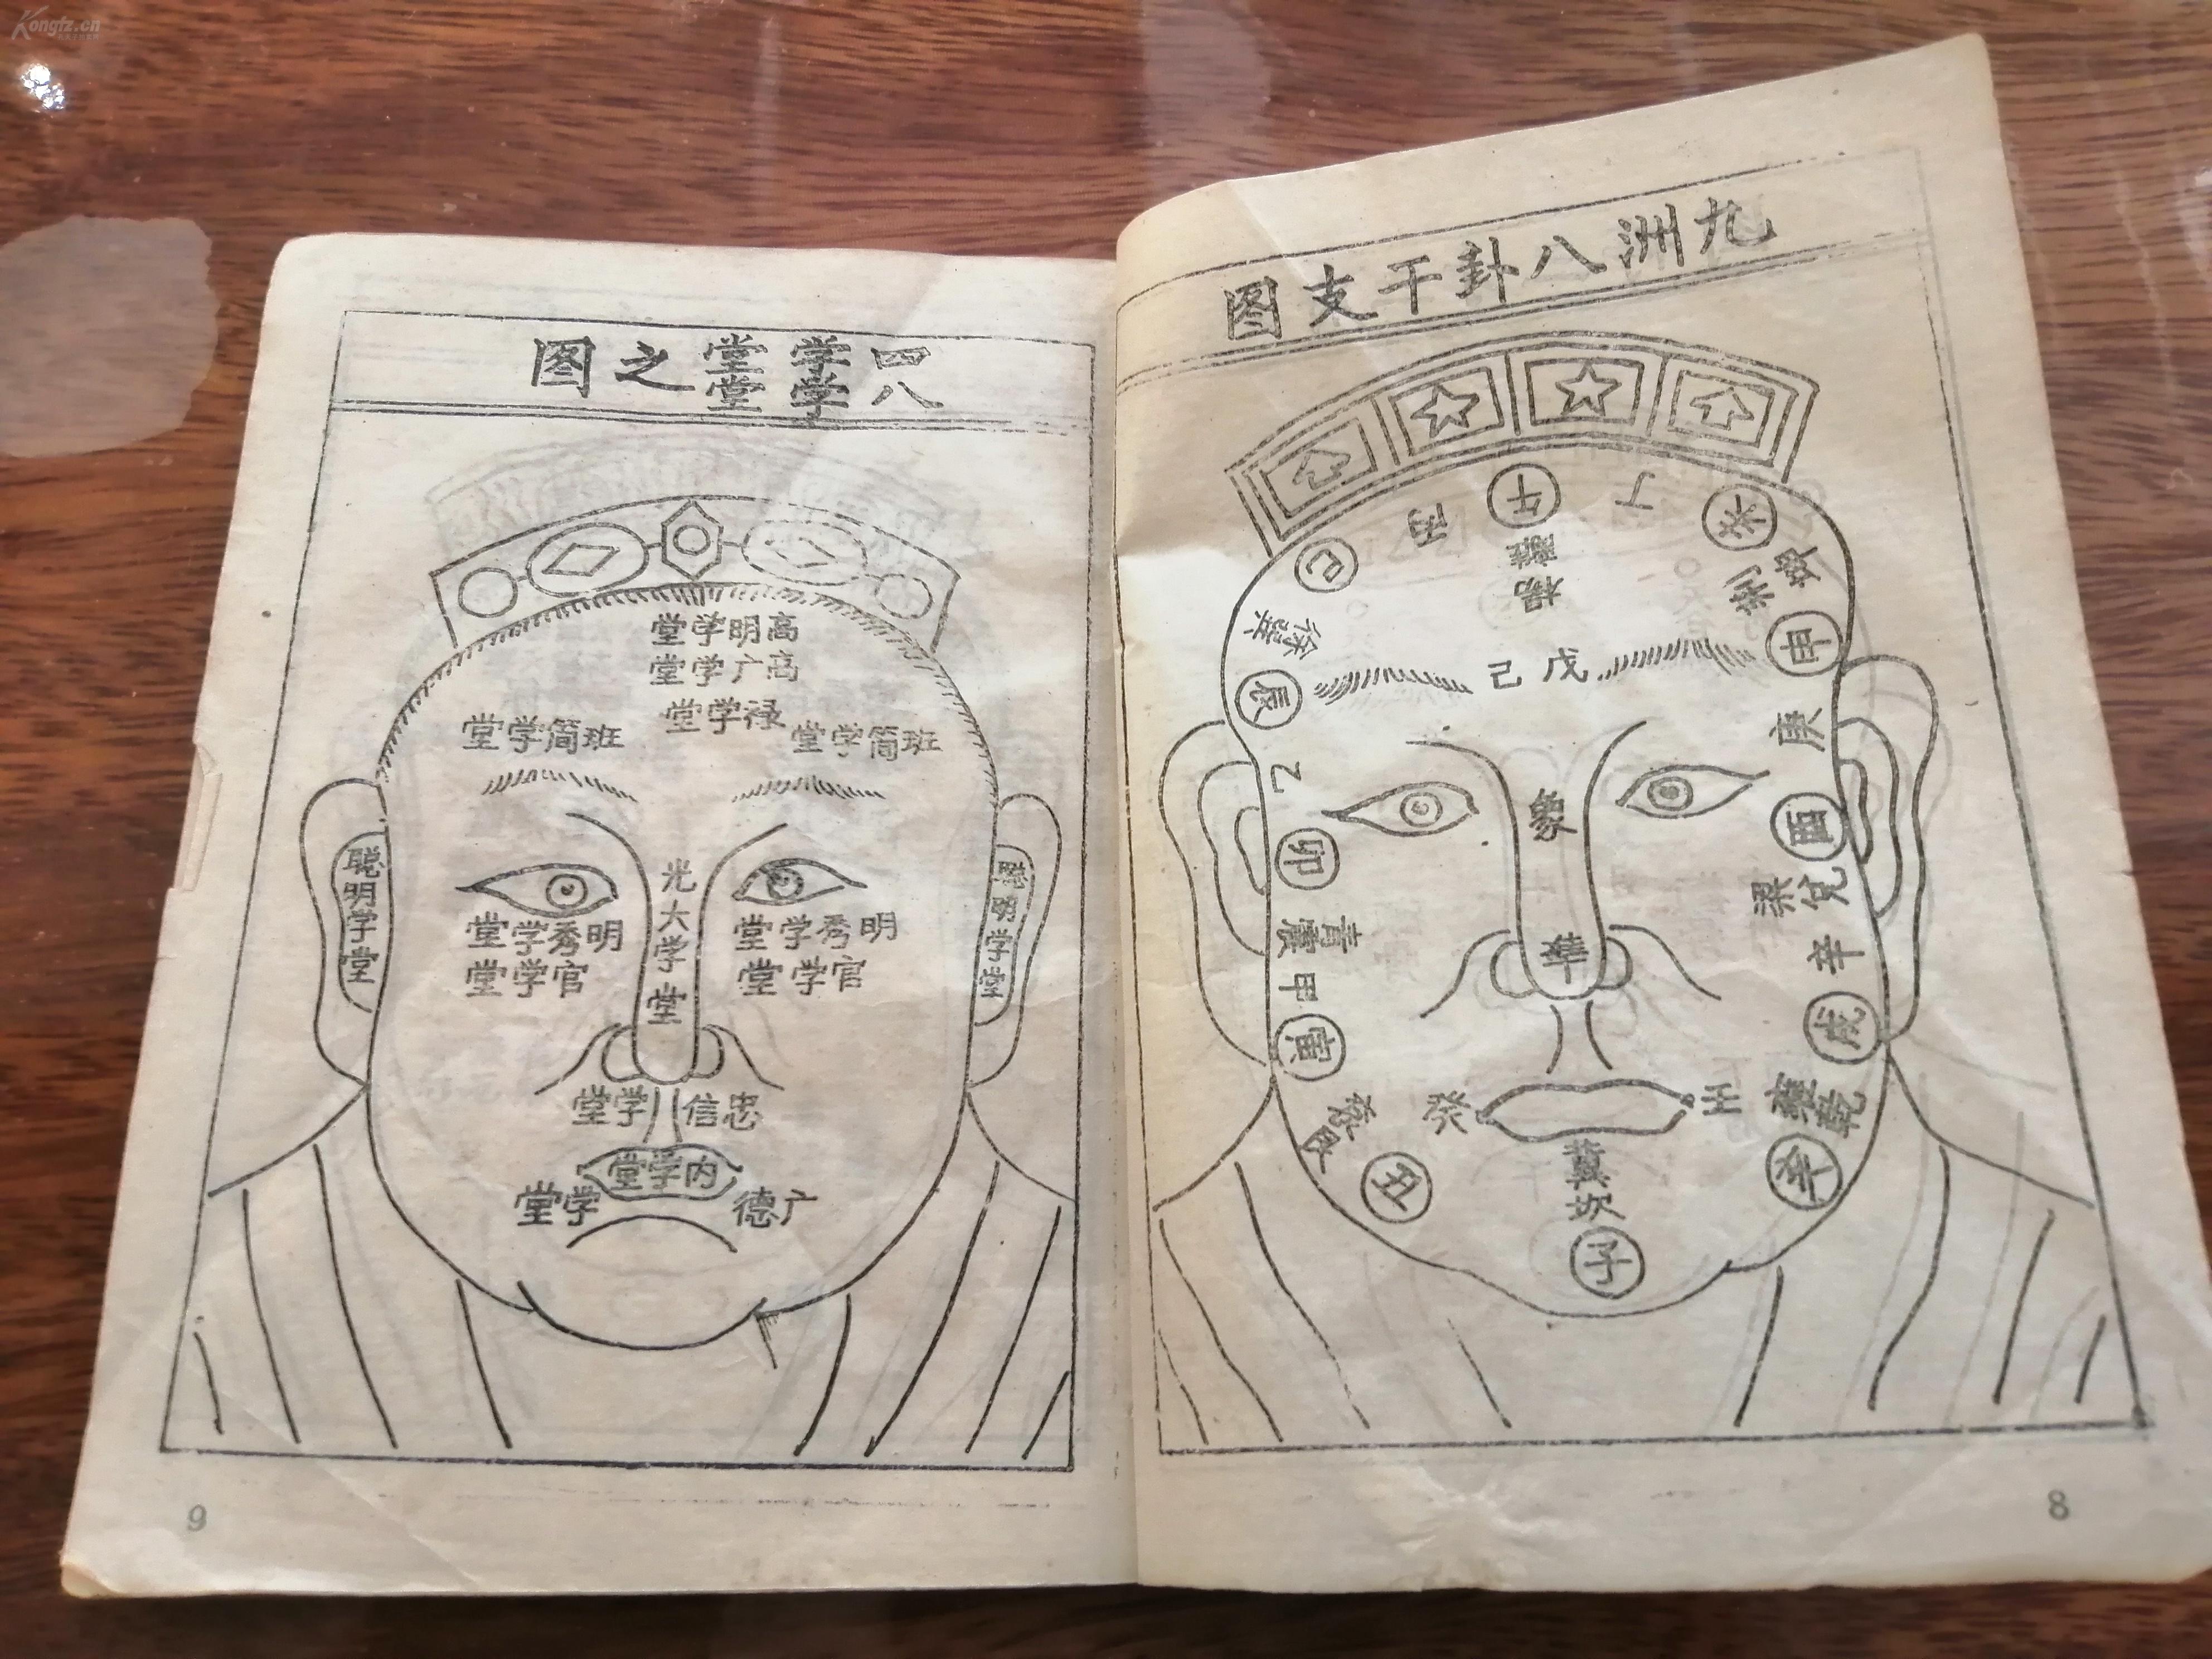 Kongfz.cn
九洲八卦干支图
午
丁
未
丙
巳
離
楊
坤
荆
申
徐
巽
辰
己 戊
庚
乙
象
酉
卯
兌
梁
青
震
準
辛
甲
戌
寅
雍
乾
癸
壬
艮
丑
冀
坎
辛
子
8
四学堂
八学堂
之图
高明学堂
高广学堂
禄学堂
班简学堂
班简学堂
聪明学堂
聪明学堂
光大学堂
明秀学堂
官学堂
明秀学堂
官学堂
忠信学堂
内学堂
广德学堂
9